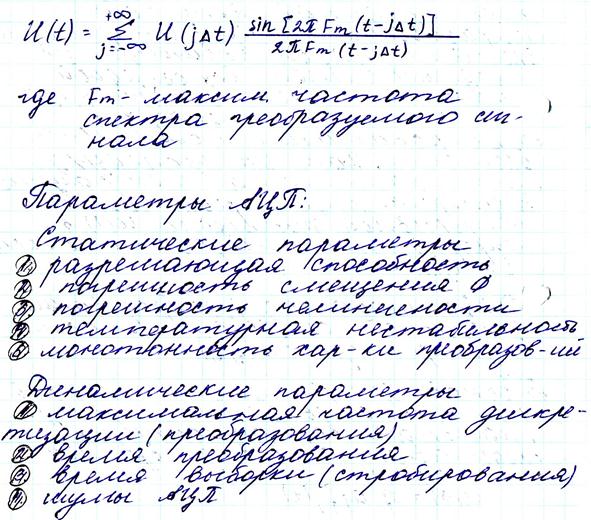 U(t) = +∞ Σ j=-∞ U(jΔt) sin[2πFm(t-jΔt)] / 2πFm(t-jΔt)
где Fm - максим. частота
спектра преобразуемого сиг-
нала
Параметры АЦП:
Статические параметры
1) разрешающая способность
2) погрешность смещения Ф
3) погрешность нелинейности
4) температурная нестабильность
5) монотонность хар-ки преобразов-ий
Динамические параметры
1) максимальная частота дискре-
тизации (преобразования)
2) время преобразования
3) время выборки (стробирования)
4) шумы АЦП